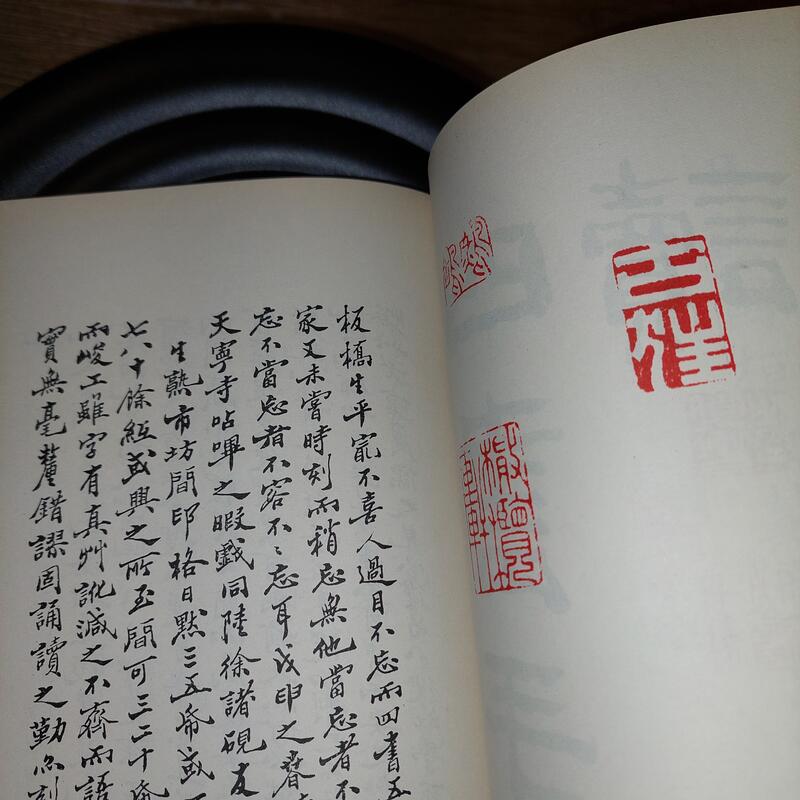 橄欖軒
板橋生平㝡不喜人過目不忘而四書五
家又未嘗時刻而稍忘無他當忘者不
忘不當忘者不容不〻忘耳戊申之春
天寧寺呫嗶之暇戲同陸徐諸硯友
生熟市坊間印格日默三五帋或
七八十餘帋或興之所至間可三二十帋
而竣工雖字有真艸訛減之不齊而語
實無毫釐錯謬固誦讀之勤亦刻